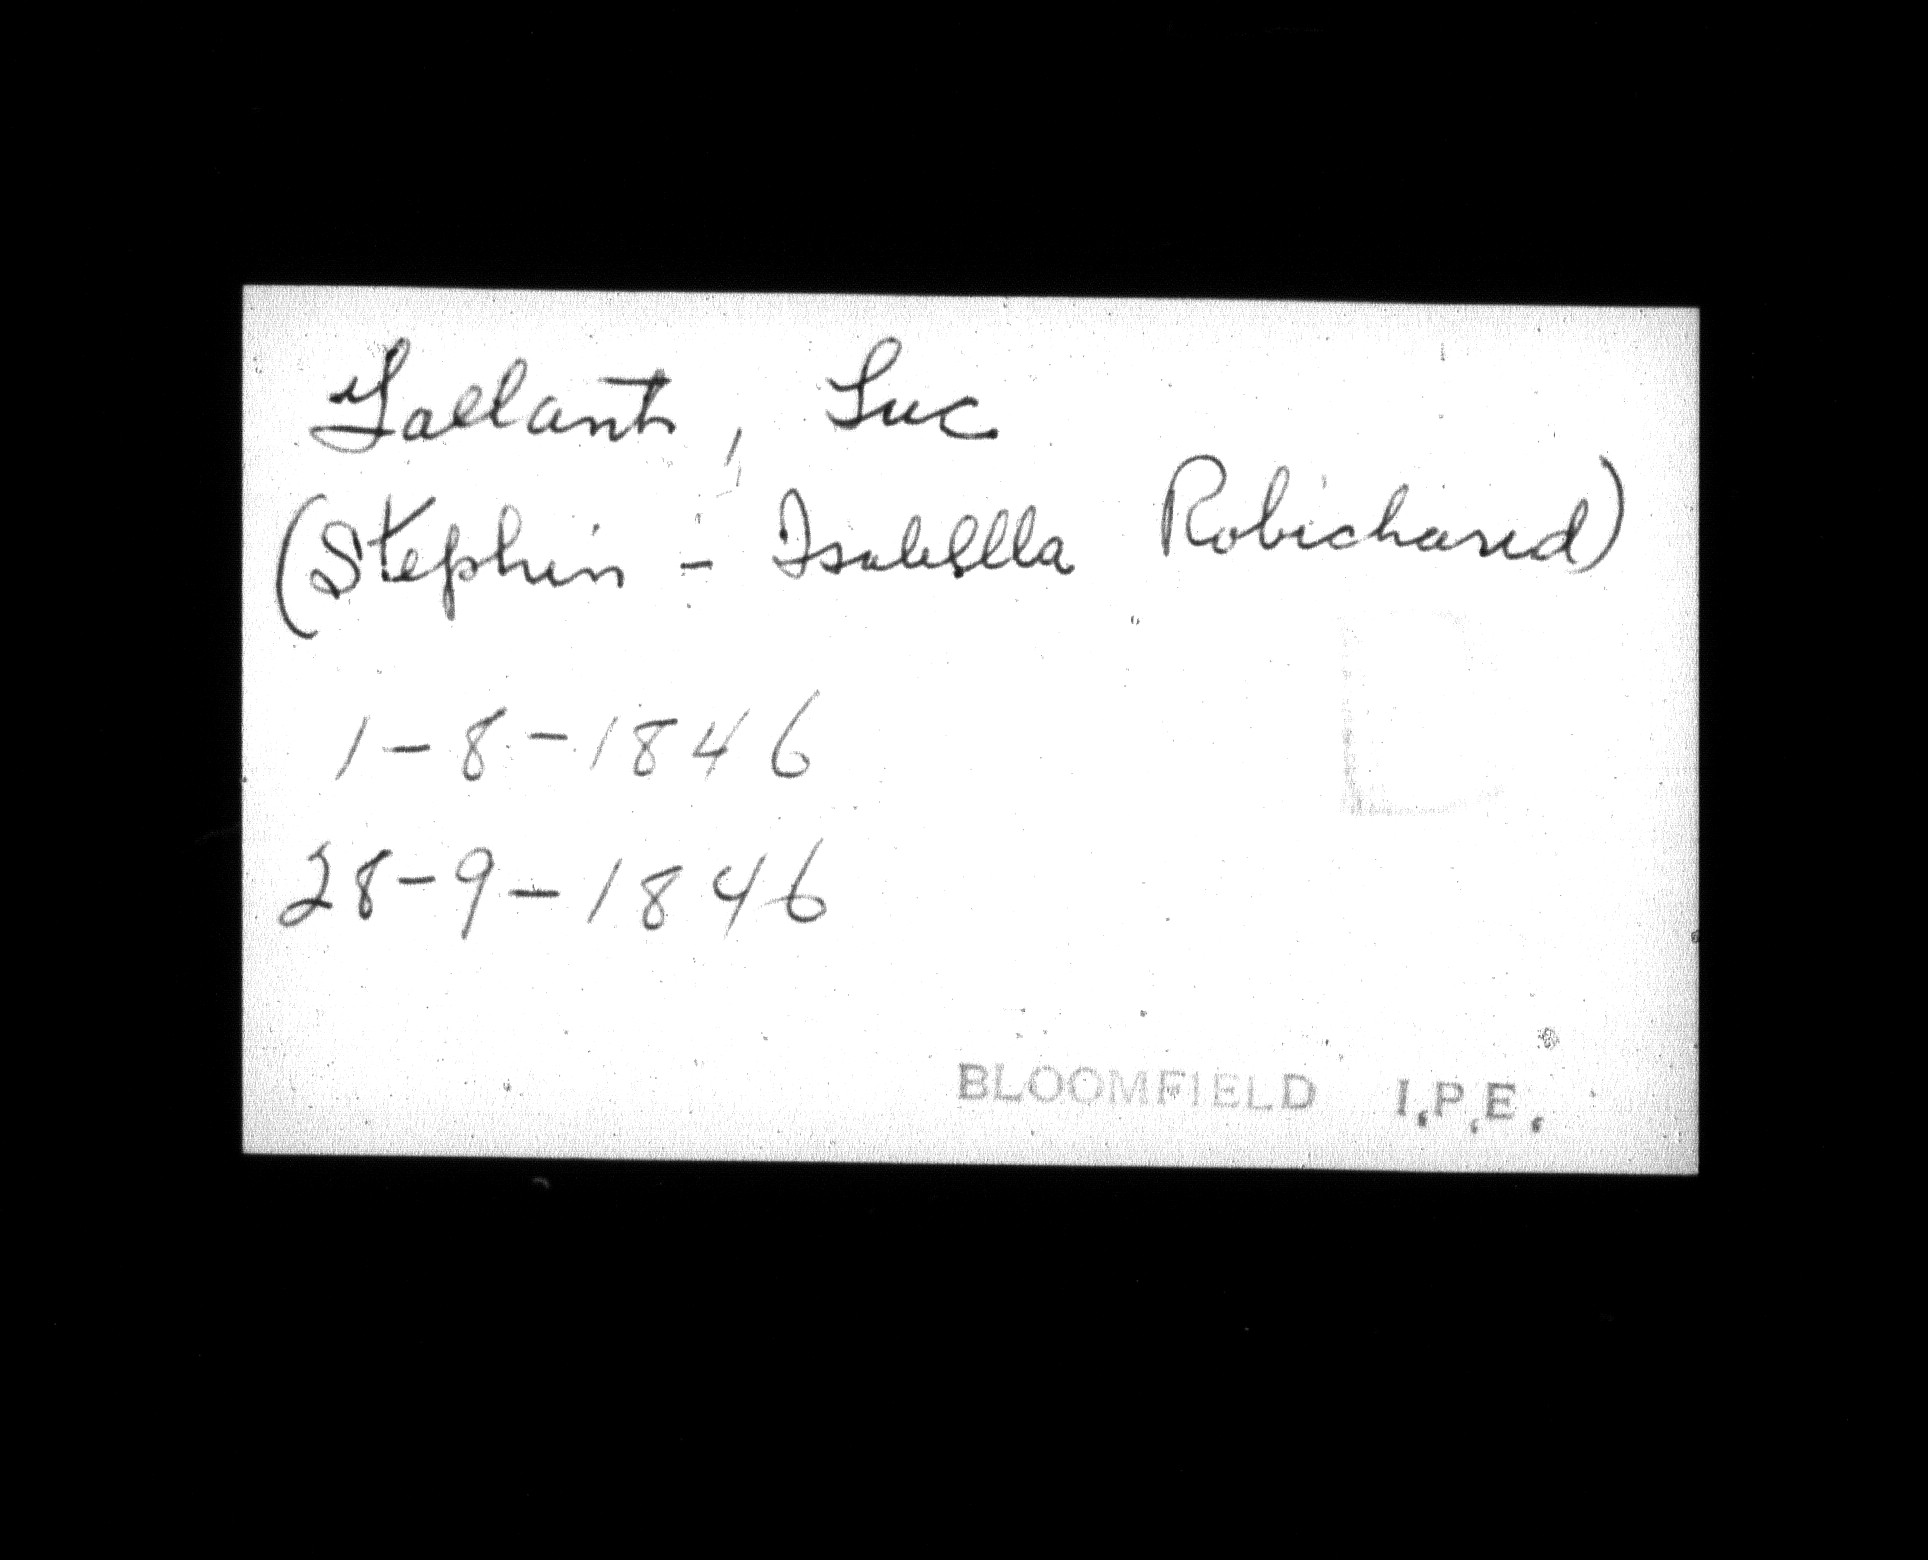 Gallant, Luc
(Stephen - Isabella Robichaud)
1-8-1846
28-9-1846
BLOOMFIELD I.P.E.